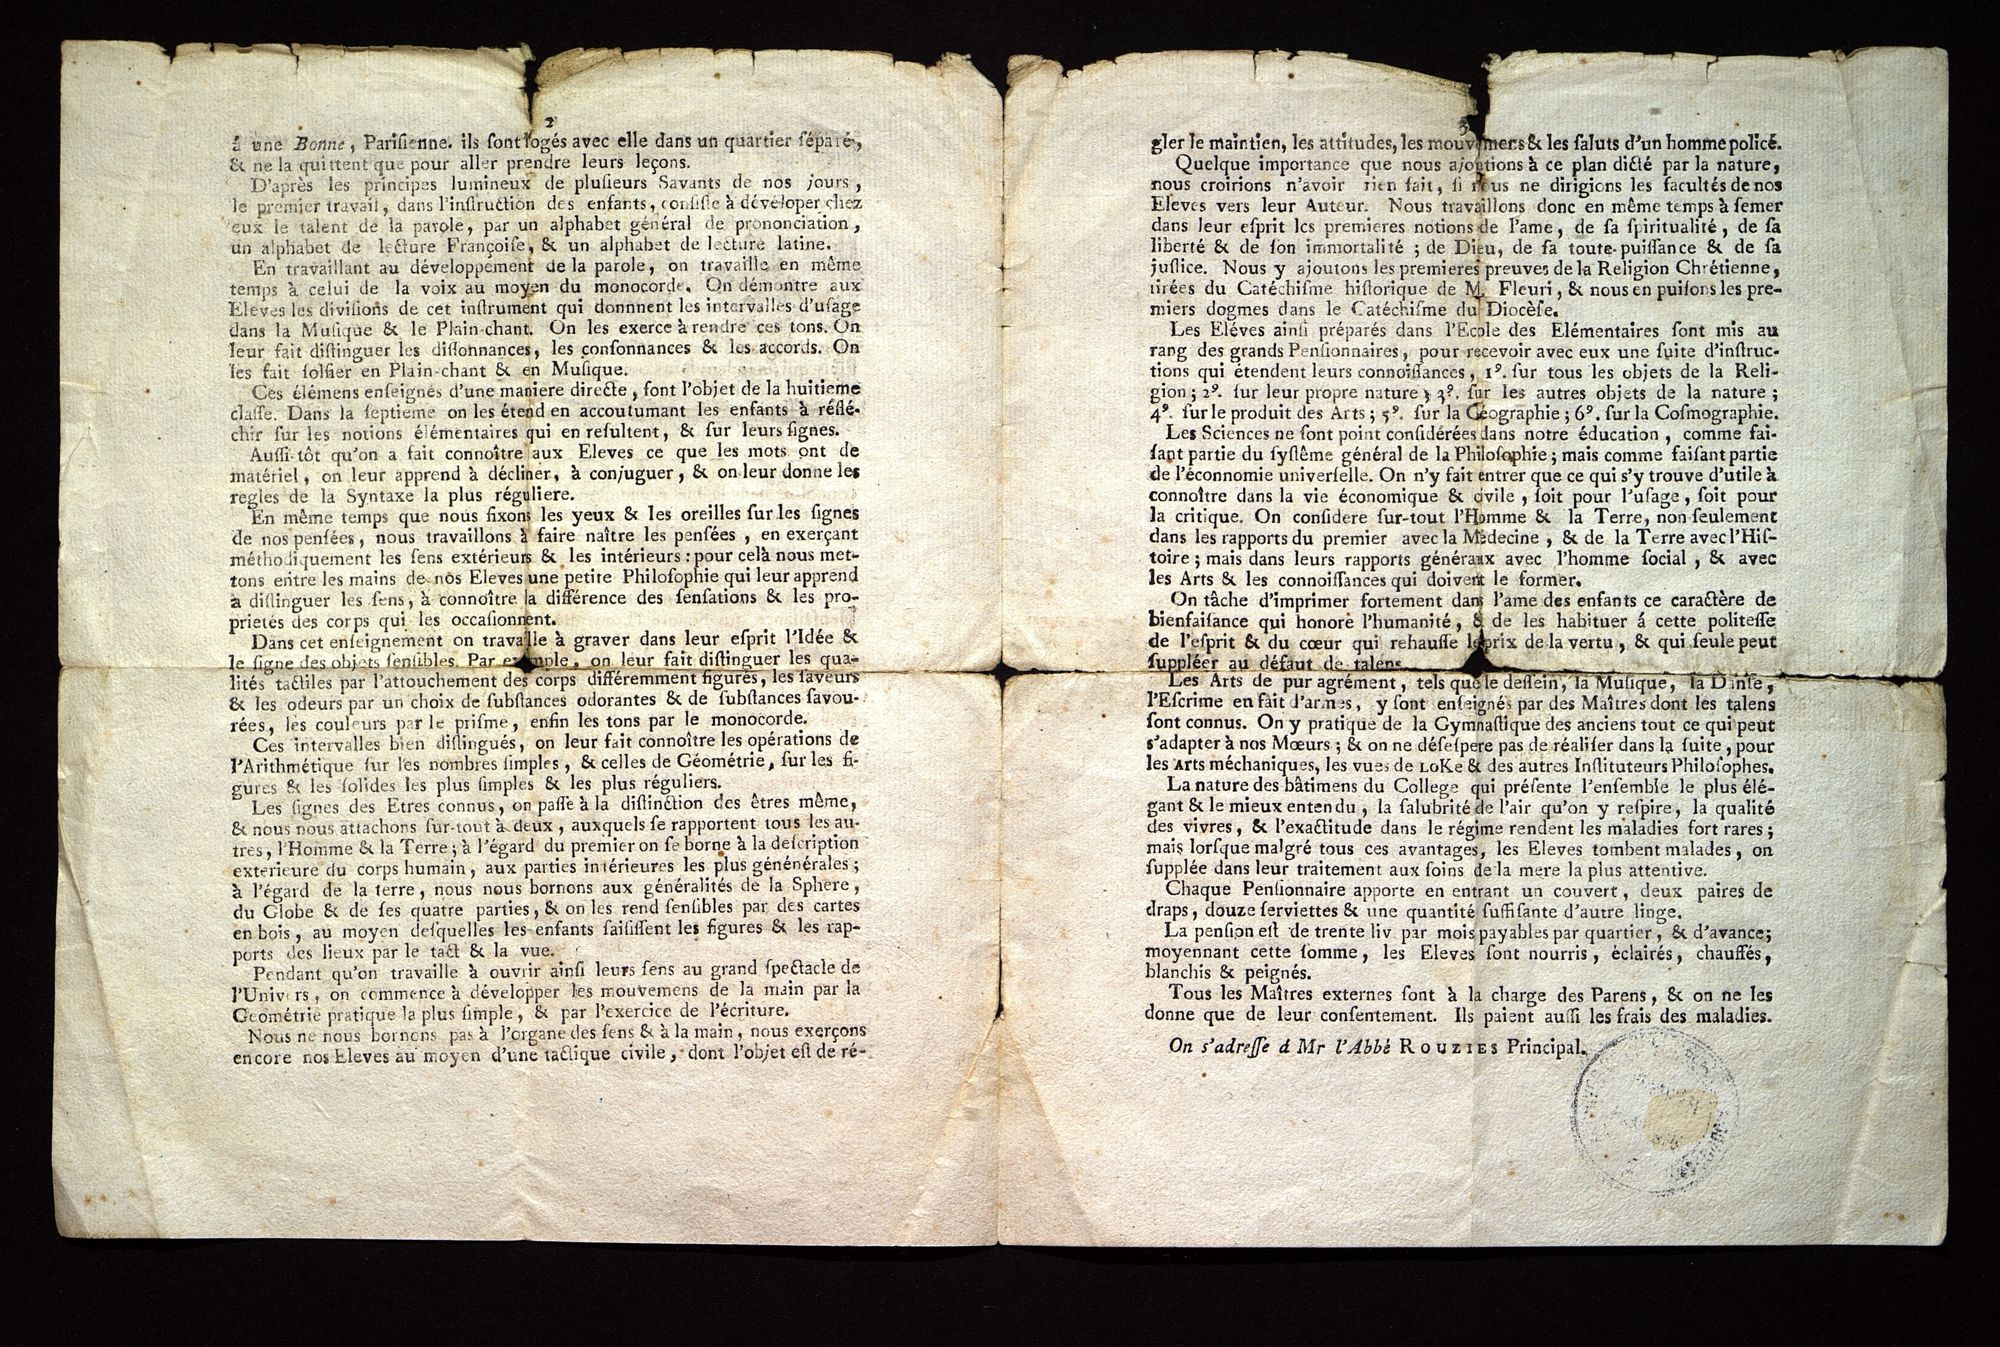 2
á une Bonne, Parisienne. ils sont logés avec elle dans un quartier séparé,
& ne la quittent que pour aller prendre leurs leçons.
D'après les principes lumineux de plusieurs Savants de nos jours,
le premier travail, dans l'instruction des enfants, consiste à déveloper chez
eux le talent de la parole, par un alphabet général de prononciation,
un alphabet de lecture Françoise, & un alphabet de lecture latine.
En travaillant au développement de la parole, on travaille en même
temps à celui de la voix au moyen du monocorde. On démontre aux
Eleves les divisions de cet instrument qui donnnent les intervalles d'usage
dans la Musique & le Plain-chant. On les exerce à rendre ces tons. On
leur fait distinguer les dissonnances, les consonnances & les accords. On
les fait solfier en Plain-chant & en Musique.
Ces élémens enseignés d'une maniere directe, font l'objet de la huitieme
classe. Dans la septieme on les étend en accoutumant les enfants à réflé-
chir sur les notions élémentaires qui en resultent, & sur leurs signes.
Aussi-tôt qu'on a fait connoître aux Eleves ce que les mots ont de
matériel, on leur apprend à décliner, à conjuguer, & on leur donne les
regles de la Syntaxe la plus réguliere.
En même temps que nous fixons les yeux & les oreilles sur les signes
de nos pensées, nous travaillons à faire naître les pensées, en exerçant
méthodiquement les sens extérieurs & les intérieurs : pour celà nous met-
tons entre les mains de nos Eleves une petite Philosophie qui leur apprend
a distinguer les sens, à connoître la différence des sensations & les pro-
prietés des corps qui les occasionnent.
Dans cet enseignement on travaille à graver dans leur esprit l'Idée &
le signe des objets sensibles. Par exemple, on leur fait distinguer les qua-
lités tactiles par l'attouchement des corps différemment figurés, les saveurs
& les odeurs par un choix de substances odorantes & de substances savou-
rées, les couleurs par le prisme, enfin les tons par le monocorde.
Ces intervalles bien distingués, on leur fait connoître les opérations de
l'Arithmétique sur les nombres simples, & celles de Géométrie, sur les fi-
gures & les solides les plus simples & les plus réguliers.
Les signes des Etres connus, on passe à la distinction des êtres même,
& nous nous attachons sur-tout à deux, auxquels se rapportent tous les au-
tres, l'Homme & la Terre; à l'égard du premier on se borne à la description
exterieure du corps humain, aux parties intérieures les plus génénérales;
à l'égard de la terre, nous nous bornons aux généralités de la Sphere,
du Globe & de ses quatre parties, & on les rend sensibles par des cartes
en bois, au moyen desquelles les enfants saisissent les figures & les rap-
ports des lieux par le tact & la vue.
Pendant qu'on travaille à ouvrir ainsi leurs sens au grand spectacle de
l'Univers, on commence à développer les mouvemens de la main par la
Geométrie pratique la plus simple, & par l'exercice de l'écriture.
Nous ne nous bornons pas à l'organe des sens & à la main, nous exerçons
encore nos Eleves au moyen d'une tactique civile, dont l'objet est de ré-
3
gler le maintien, les attitudes, les mouvemens & les saluts d'un homme policé.
Quelque importance que nous ajoutions à ce plan dicté par la nature,
nous croirions n'avoir rien fait, si nous ne dirigions les facultés de nos
Eleves vers leur Auteur. Nous travaillons donc en même temps à semer
dans leur esprit les premieres notions de l'ame, de sa spiritualité, de sa
liberté & de son immortalité; de Dieu, de sa toute-puissance & de sa
justice. Nous y ajoutons les premieres preuves de la Religion Chrétienne,
tirées du Catéchisme historique de M. Fleuri, & nous en puisons les pre-
miers dogmes dans le Catéchisme du Diocèse.
Les Eléves ainsi préparés dans l'Ecole des Elémentaires sont mis au
rang des grands Pensionnaires, pour recevoir avec eux une suite d'instruc-
tions qui étendent leurs connoissances, 1º. sur tous les objets de la Reli-
gion; 2º. sur leur propre nature; 3º. sur les autres objets de la nature;
4º. sur le produit des Arts; 5º. sur la Géographie; 6º. sur la Cosmographie.
Les Sciences ne sont point considérées dans notre éducation, comme fai-
sant partie du systême général de la Philosophie; mais comme faisant partie
de l'éconnomie universelle. On n'y fait entrer que ce qui s'y trouve d'utile à
connoître dans la vie économique & civile, soit pour l'usage, soit pour
la critique. On considere sur-tout l'Homme & la Terre, non seulement
dans les rapports du premier avec la Médecine, & de la Terre avec l'His-
toire; mais dans leurs rapports généraux avec l'homme social, & avec
les Arts & les connoissances qui doivent le former.
On tâche d'imprimer fortement dans l'ame des enfants ce caractère de
bienfaisance qui honore l'humanité, & de les habituer á cette politesse
de l'esprit & du cœur qui rehausse le prix de la vertu, & qui seule peut
suppléer au défaut de talens.
Les Arts de pur agrément, tels que le dessein, la Musique, la Danse,
l'Escrime en fait d'armes, y sont enseignés par des Maîtres dont les talens
sont connus. On y pratique de la Gymnastique des anciens tout ce qui peut
s'adapter à nos Mœurs; & on ne désespere pas de réaliser dans la suite, pour
les Arts méchaniques, les vues de LOKE & des autres Instituteurs Philosophes.
La nature des bâtimens du College qui présente l'ensemble le plus élé-
gant & le mieux entendu, la salubrité de l'air qu'on y respire, la qualité
des vivres, & l'exactitude dans le régime rendent les maladies fort rares;
mais lorsque malgré tous ces avantages, les Eleves tombent malades, on
supplée dans leur traitement aux soins de la mere la plus attentive.
Chaque Pensionnaire apporte en entrant un couvert, deux paires de
draps, douze serviettes & une quantité suffisante d'autre linge.
La pension est de trente liv. par mois payables par quartier, & d'avance;
moyennant cette somme, les Eleves sont nourris, éclairés, chauffés,
blanchis & peignés.
Tous les Maîtres externes sont à la charge des Parens, & on ne les
donne que de leur consentement. Ils paient aussi les frais des maladies.
On s'adresse á Mr l'Abbé ROUZIES Principal.